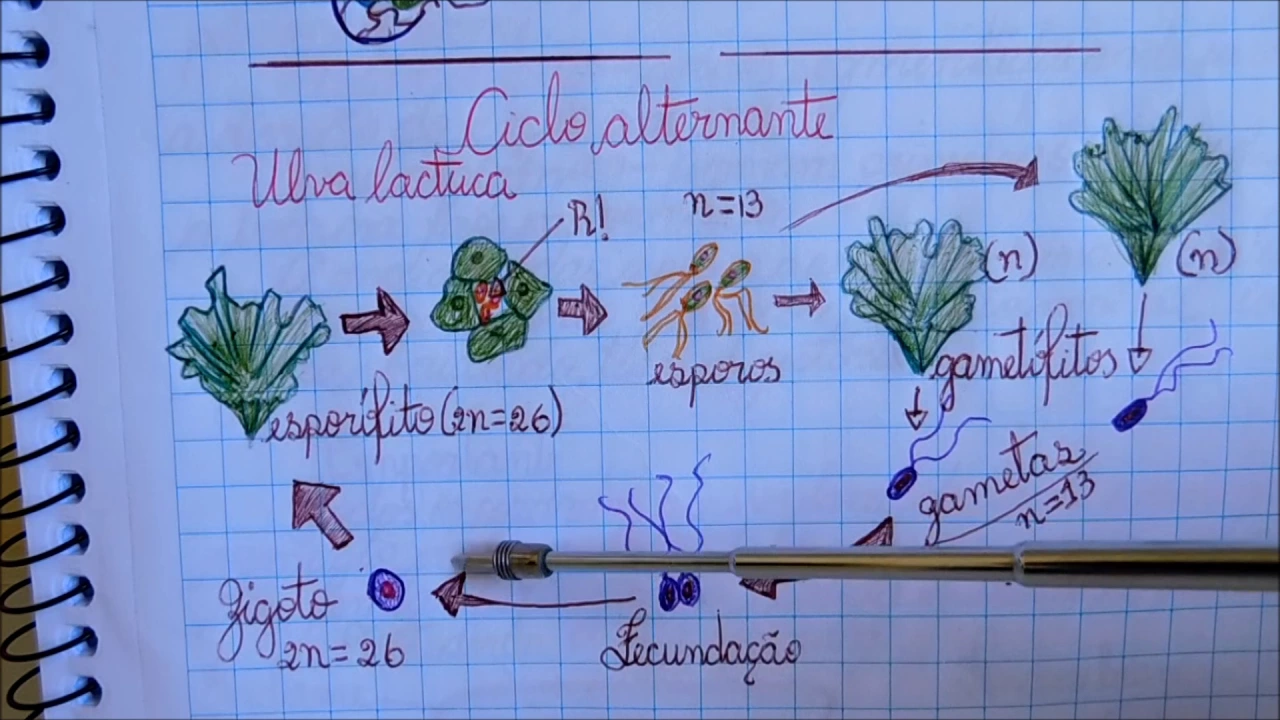 Ciclo alternante
Ulva lactuca
R!
n=13
(n)
(n)
esporos
gametófitos
esporífito (2n=26)
gametas
n=13
Zigoto
2n=26
Fecundação